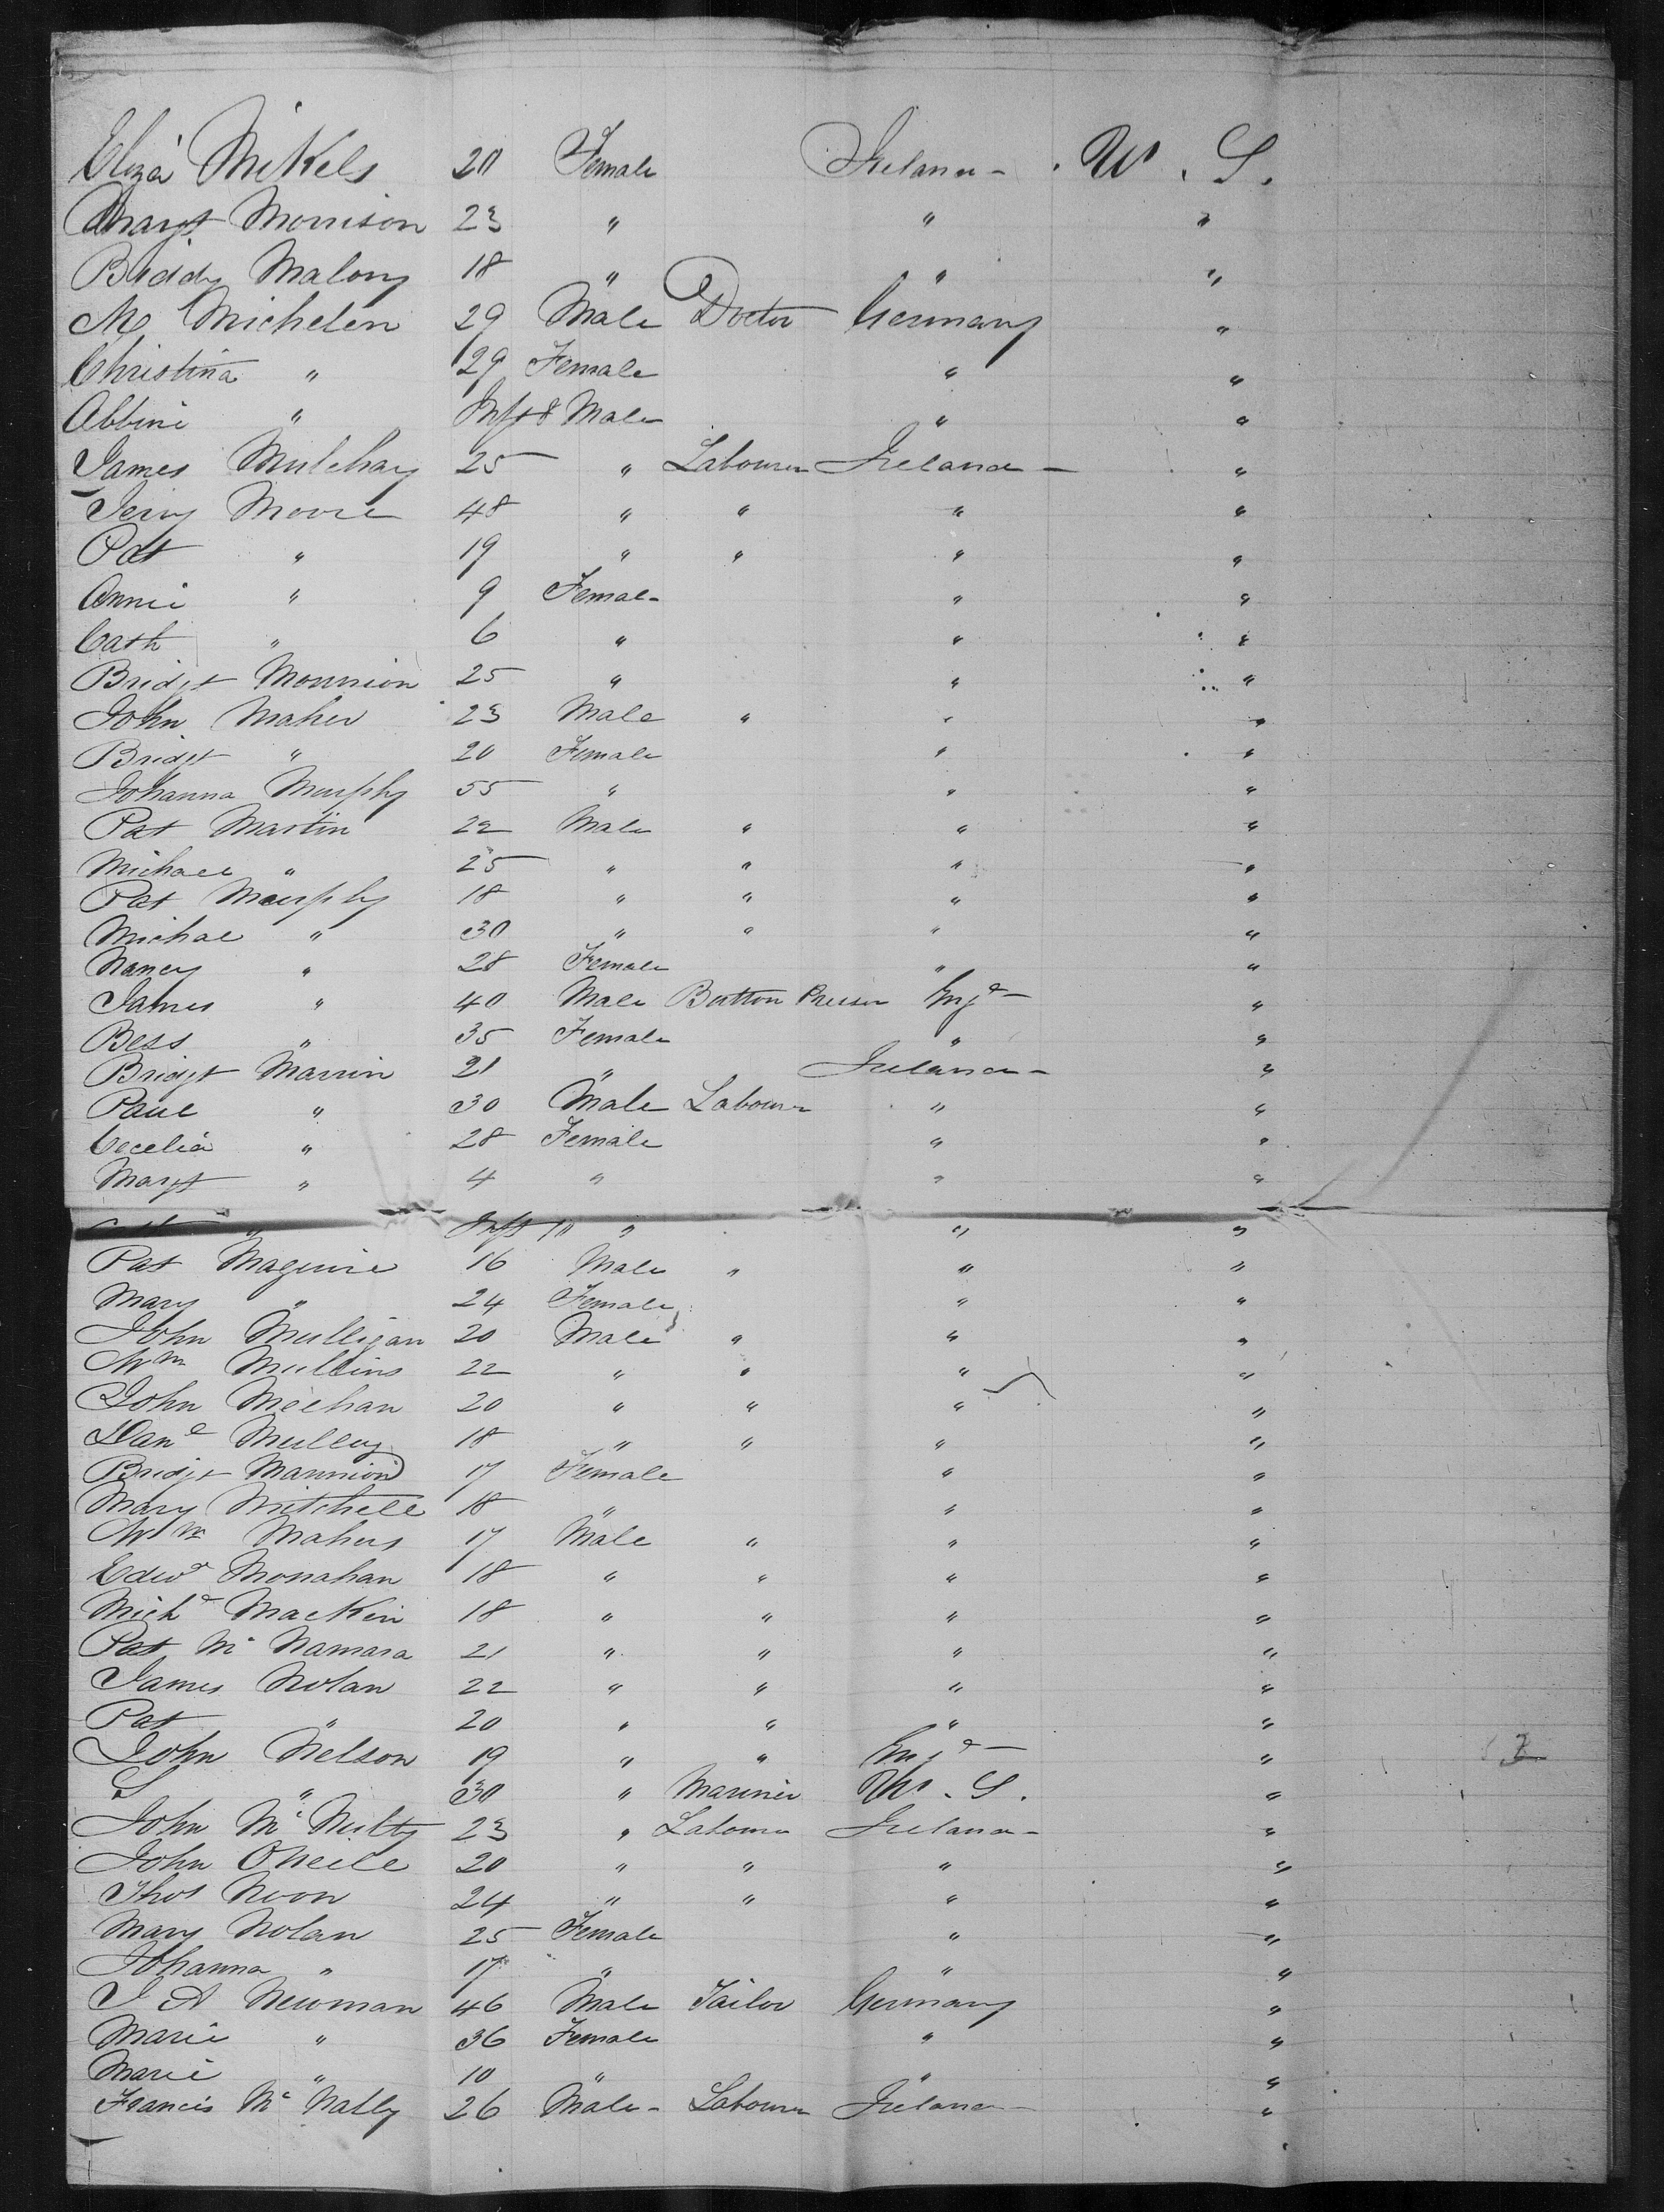 Eliza Mikels 20 Female Ireland - . U . S .
Margt Morrison 23 " " "
Biddy Malony 18 " " "
M Michelen 29 Male Doctor Germany "
Christina " 29 Female " "
Abbine " Inft 8 Male " "
James Mulchay 25 " Labourer Ireland - "
Jerry Moore 48 " " " "
Pat " 19 " " " "
Annie " 9 Female " "
Cath " 6 " " "
Bridgt Mounion 25 " " "
John Maher 23 Male " " "
Bridgt " 20 Female " "
Johanna Murphy 55 " " "
Pat Martin 22 Male " " "
Michael " 25 " " " "
Pat Murphy 18 " " " "
Michae " 30 " " " "
Nancy " 28 Female " "
James " 40 Male Button Presser Engd - "
Bess " 35 Female " "
Bridgt Marrin 21 " Ireland - "
Paul " 30 Male Labourer " "
Cecelia " 28 Female " "
Margt " 4 " " "
" Inft 10 " " "
Pat Maguire 16 Male " " "
Mary " 24 Female " "
John Mulligan 20 Male " " "
Wm Mullins 22 " " " "
John Meehan 20 " " " "
Danl Mulloy 18 " " " "
Bridgt Mannion 17 Female " "
Mary Mitchell 18 " " "
Wm Mahers 17 Male " " "
Edwd Monahan 18 " " " "
Michl Mackin 18 " " " "
Pat Mc Namara 21 " " " "
James Nolan 22 " " " "
Pat " 20 " " " "
John Nelson 19 " " Engd - "
S " 30 " Mariner U . S . "
John Mc Nulty 23 " Labourer Ireland - "
John ONeill 20 " " " "
Thos Noon 24 " " " "
Mary Nolan 25 Female " "
Johanna " 17 " " "
J A Newman 46 Male Tailor Germany "
Marie " 36 Female " "
Marie " 10 " " "
Francis Mc Nally 26 Male - Labourer Ireland - "